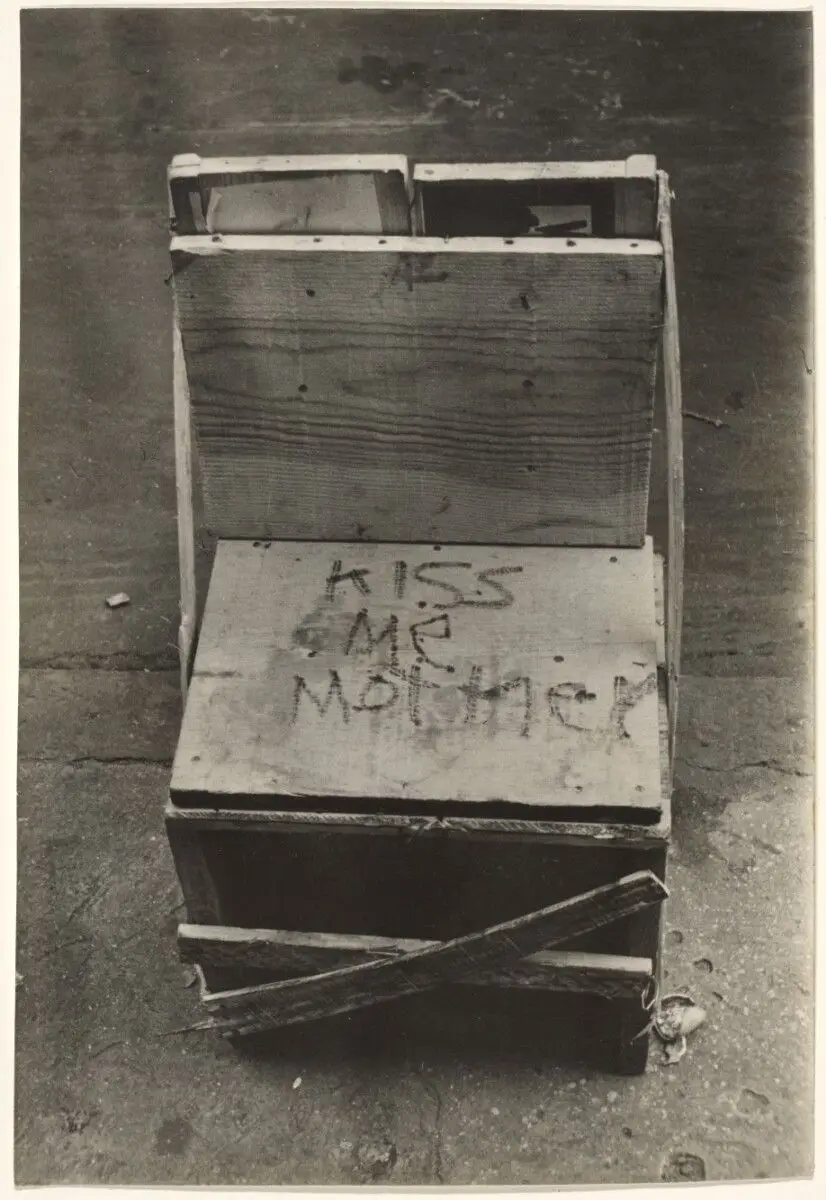 KISS
Me
Mother